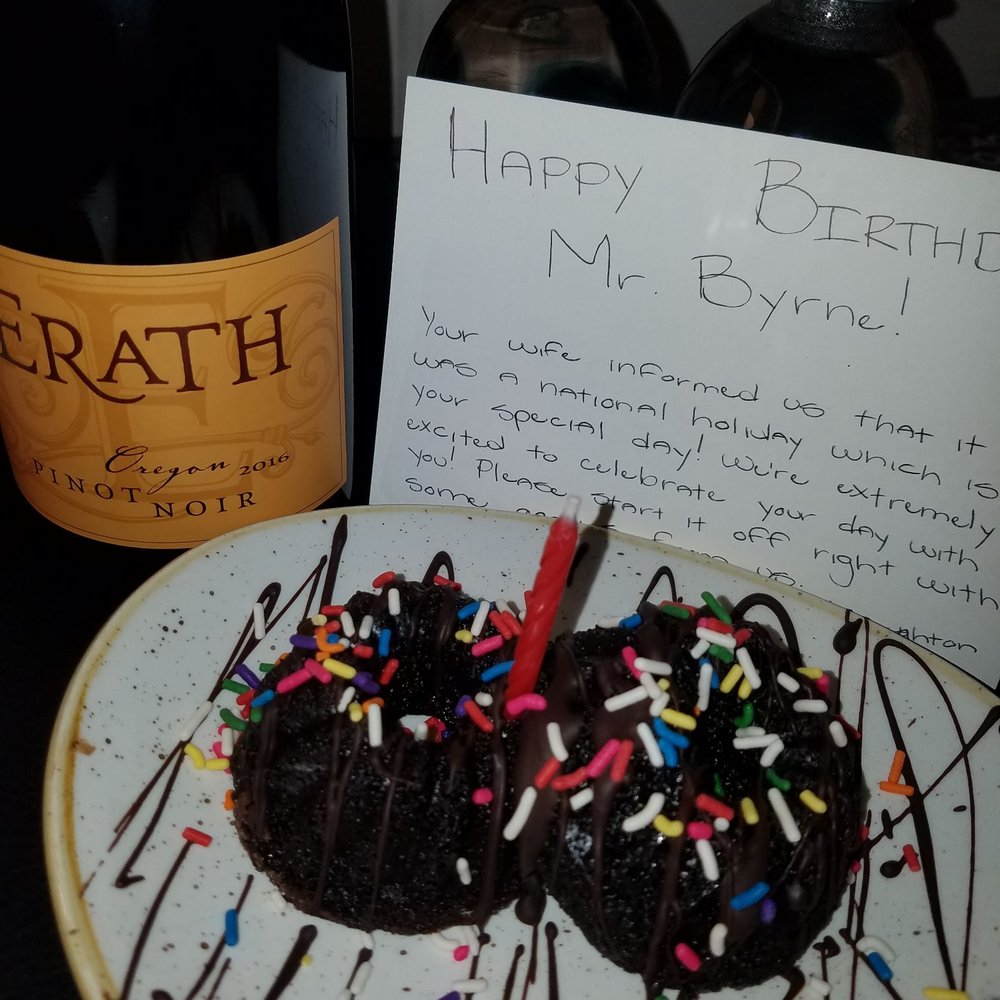 ERATH
Oregon 2016
PINOT NOIR
HAPPY BIRTHD
Mr. Byrne!
Your wife informed us that it
was a national holiday which is
your special day! We're extremely
excited to celebrate your day with
you! Please start it off right with
some from us.